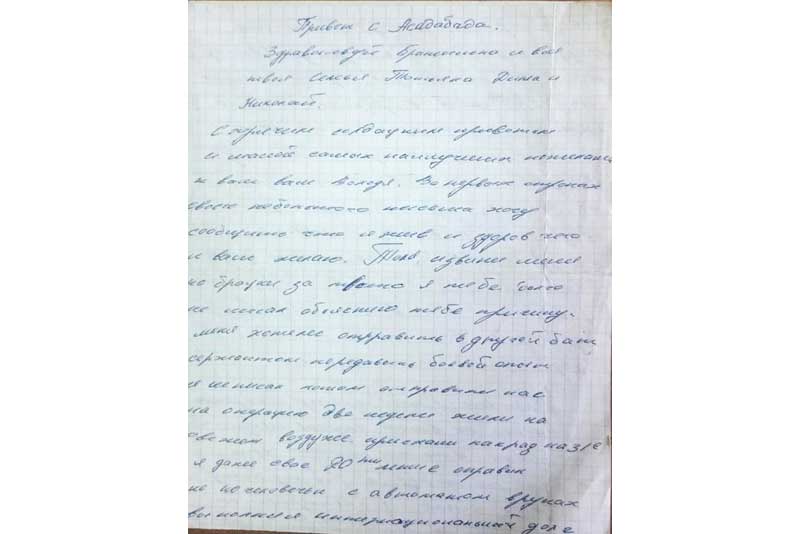 Привет с Асадабада.
Здравствуйте братишка и вся
твоя семья Татьяна Дима и
Николай.
С горячим и братским приветом
и массой самых наилучших пожелани
к вам ваш Володя. Во первых строках
своего небольшого письма хочу
сообщить что я жив и здоров чего
и вам желаю. Толя извини меня
но братуха за то что я тебе долго
не писал объясню тебе причину.
меня хотели отправить в другой бат.
сержантом передавать боевой опыт
я не писал потом отправили нас
на операцию две недели жили на
свежем воздухе приехали наград на з/с
я даже свое 20ти летие справил
не по человечьи с автоматом в руках
выполняя интернациональный долг